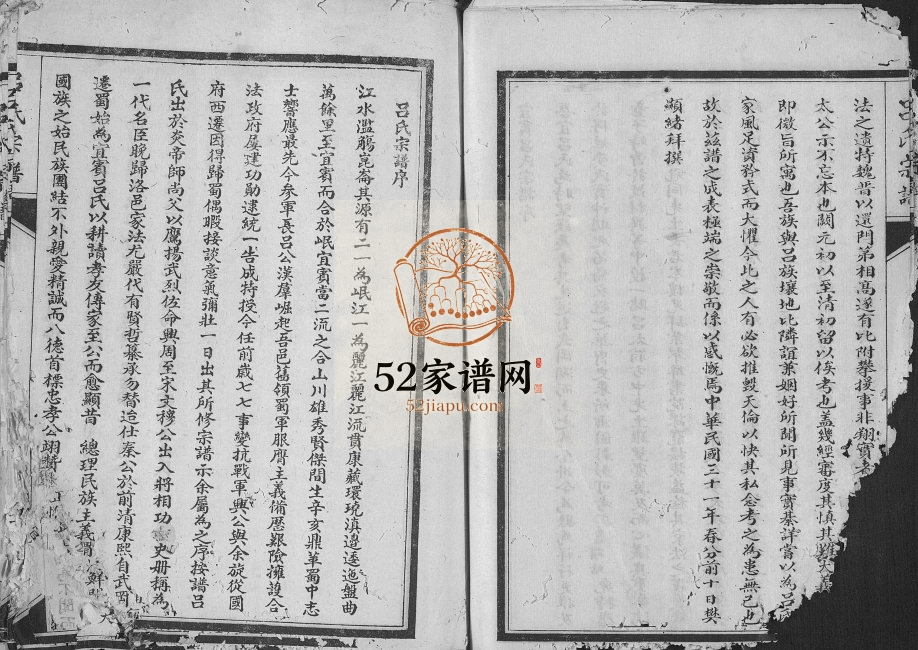 呂氏宗譜
法之遺特魏晋以還門第相髙遂有比附攀援事非翔實
太公示不忘本也闕元初以至清初留以俟考也蓋幾經審度其慎其難大義
即微旨所寓也吾族與呂族壤地比隣誼兼姻好所聞所見事實綦詳嘗以為呂氏
家風足資矜式而大懼今此之人有必欲推毀天倫以快其私念考之為患無已也
故於兹譜之成表極端之崇敬而係以感慨焉中華民國三十一年春分前十日樊
顯緒拜撰
呂氏宗譜序
江水濫觴崑崙其源有二一為岷江一為麗江麗江流貫康藏環琥滇邊逶迤盤曲
萬餘里至宜賓而合於岷宜賓當二流之合山川雄秀賢傑間生辛亥鼎革蜀中志
士響應最先今叅軍長呂公漢羣崛起吾邑舊領蜀軍服膺主義備歷艱險擁護合
法政府屢建功勛逮統一告成特授今任前歲七七事變抗戰軍興公與余旋從國
府西遷因得歸蜀偶暇接談意氣彌壯一日出其所修宗譜示余屬為之序按譜呂
氏出於炎帝師尚父以鷹揚武烈佐命興周至宋文穆公出入將相功 史册稱為
一代名臣晚歸洛邑家法尤嚴代有賢哲纂承勿替迨仕秦公於前清康熙自武岡
遷蜀始為宜賓呂氏以耕讀孝友傳家至公而愈顯昔 總理民族主義謂
國族之始民族團結不外親愛精誠而八德首標忠孝公翊贊
呂氏宗譜
52家谱网
52jiapu.com